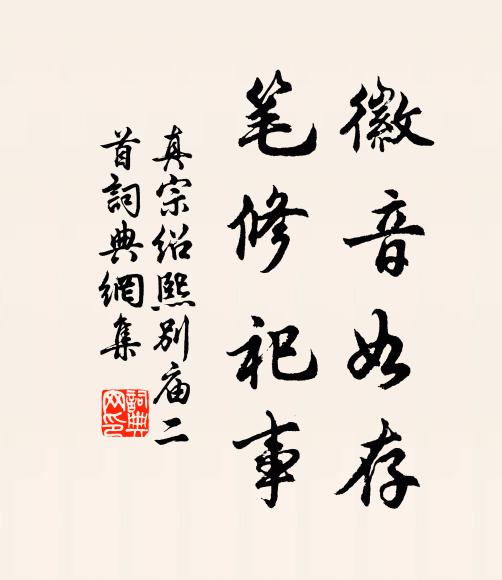 徽音如存
笔修祀事
真宗绍熙别庙二
首詞典網集
詞典网印